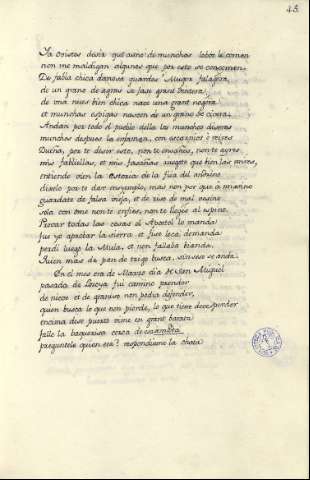 48.
Ya oistes desir que asno de munchos lobos le comen
non me maldigan algunas que por esto se concomen
De fabla chica dañosa guardese Muger falaguera,
de un grano de agras se fase grant dentera,
de una nues bien chica nace una grant noguera
et munchas espigas nascen de un grano de civera.
Andan por todo el pueblo della los munchos disires
munchos despues la enfaman, con escarnios è reires
Dueña, por te desir esto, non te enseñes, nin te ayres
mis fabliellas, et mis fasañas ruegote que bien las mires,
entiende bien la estoria de la fija del endrino
dixelo por te dar ensyemplo, mas non por que a mi avino
guardate de falsa vieja, et de riso de mal vesino
sola con ome non te enfies, non te llegues al espino.
Provar todas las cosas el Apostol lo manda
fui yo a probar la sierra et fise loca demanda
perdi luego la Mula, et non fallaba bianda,
Quien mas de pan de trigo busca, sin seso se anda.
En el mes era de Marzo dia de Sen Miguel
pasada de Loçoya fui camino prender
de nieve et de graniso non podia defender,
quien busca lo que non pierde, lo que tiene debe perder
encima dese puerto vime en grant barata
fallé la baqueriza cerca de esa mata
preguntele quien era? respondiome la chata